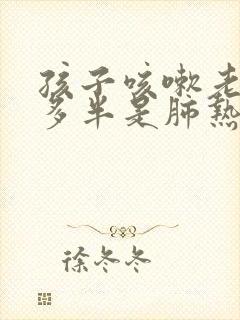 孩子咳嗽老
多半是肺热
徐冬冬